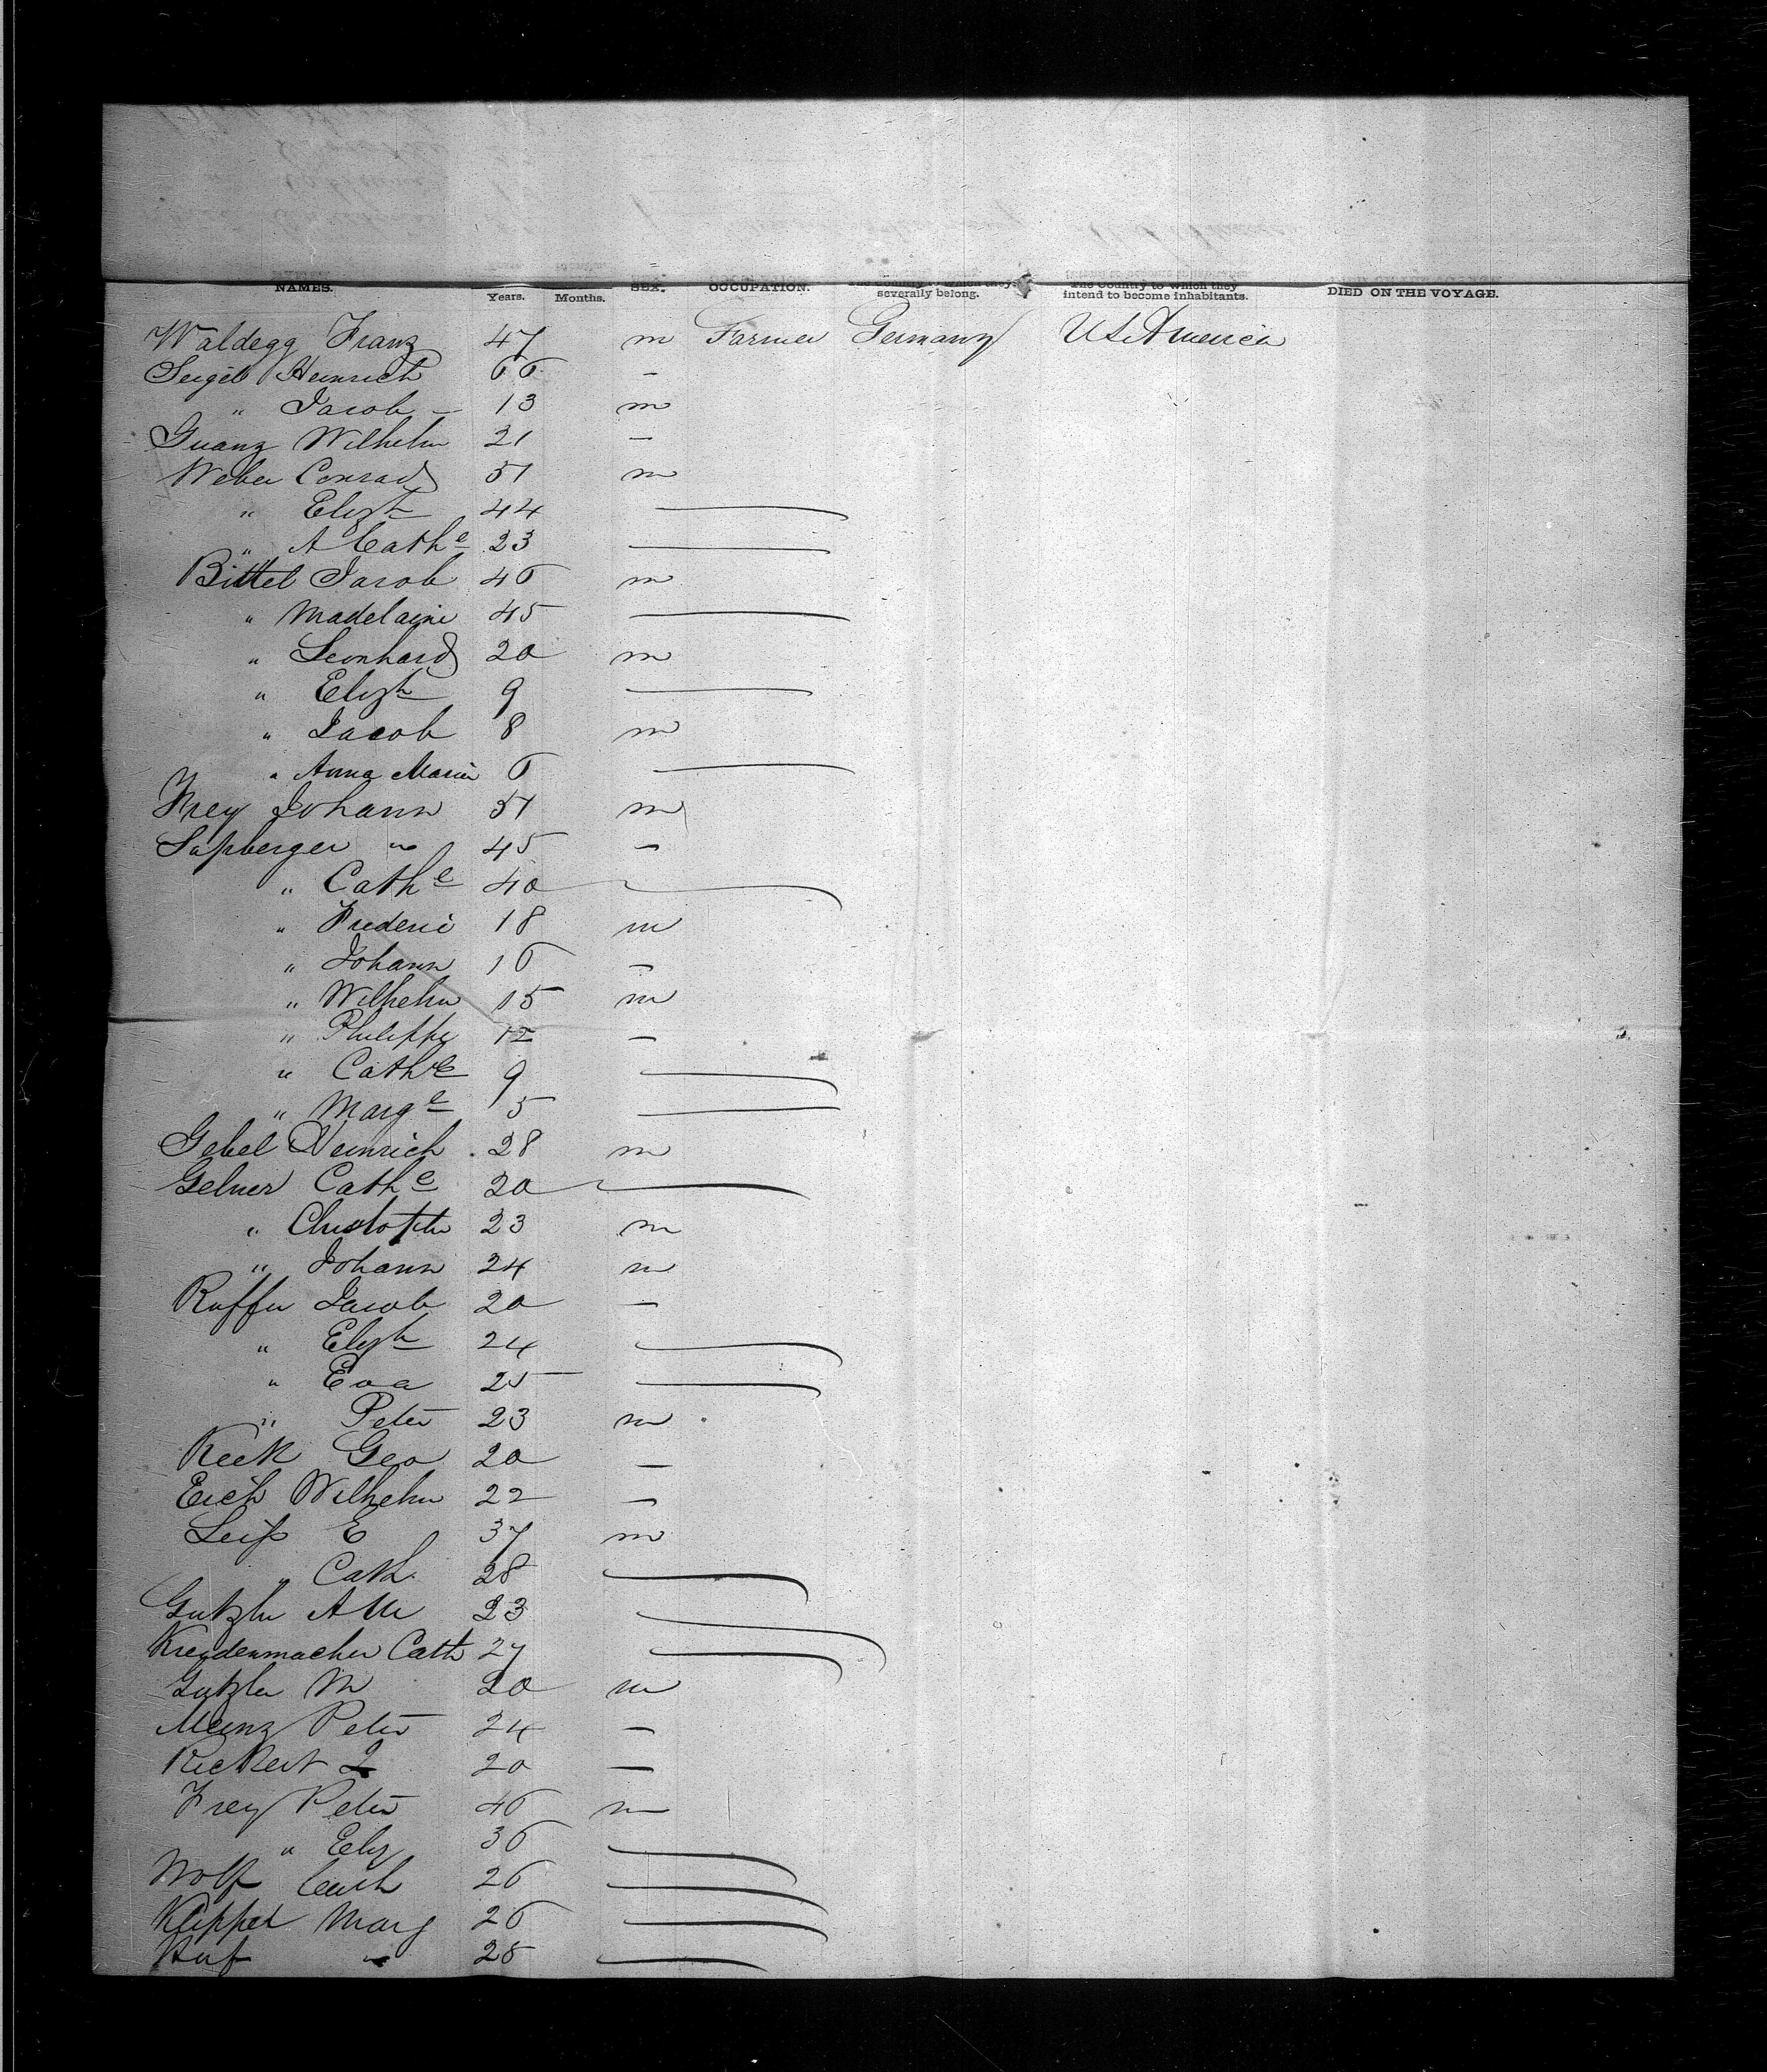 NAMES. Years. Months. SEX. OCCUPATION. The Country to which they severally belong. The Country to which they intend to become inhabitants. DIED ON THE VOYAGE.
Waldegg Franz 47 m Farmer Germany U St America
Seigel Heinrich 66 —
" Jacob — 13 m
Guanz Wilhelm 21 —
Weber Conrad 51 m
" Elizth 44
" A Cathe 23
Bittel Jacob 46 m
" Madelaine 45
" Leonhard 20 m
" Elizth 9
" Jacob 8 m
" Anna Maria 6
Frey Johann 51 m
Saßberger " 45 —
" Cathe 40
" Frederic 18 m
" Johann 16 —
" Wilhelm 15 m
" Philippe 12 —
" Cathe 9
" Marge 5
Gebel Heinrich 28 m
Gelner Cathe 20
" Christophe 23 m
" Johann 24 m
Ruffer Jacob 20 —
" Elizth 24
" Eva 25
" Peter 23 m
Keck Geo 20 —
Eich Wilhelm 22 —
Leiß E 37 m
" Cath 28
Gutzler AM 23
Kreydenmacher Cath 27
Gutzler M 20 m
Meinz Peter 24 —
Rickert L 20 —
Frey Peter 46 m
" Eliz 36
Wolf 26
Klippel Marg 26
Huf " 28